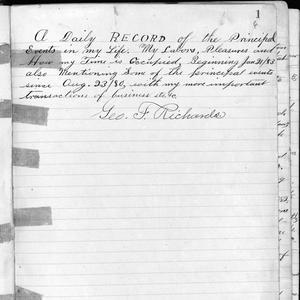 1
A Daily RECORD of the Principal
Events in my Life. My Labors, Pleasures and
How my Time is Occupied, Beginning Jan 21/83
also Mentioning Som of the principal events
since Aug. 23/80, with my more important
transactions of business etc.
Geo. F. Richards